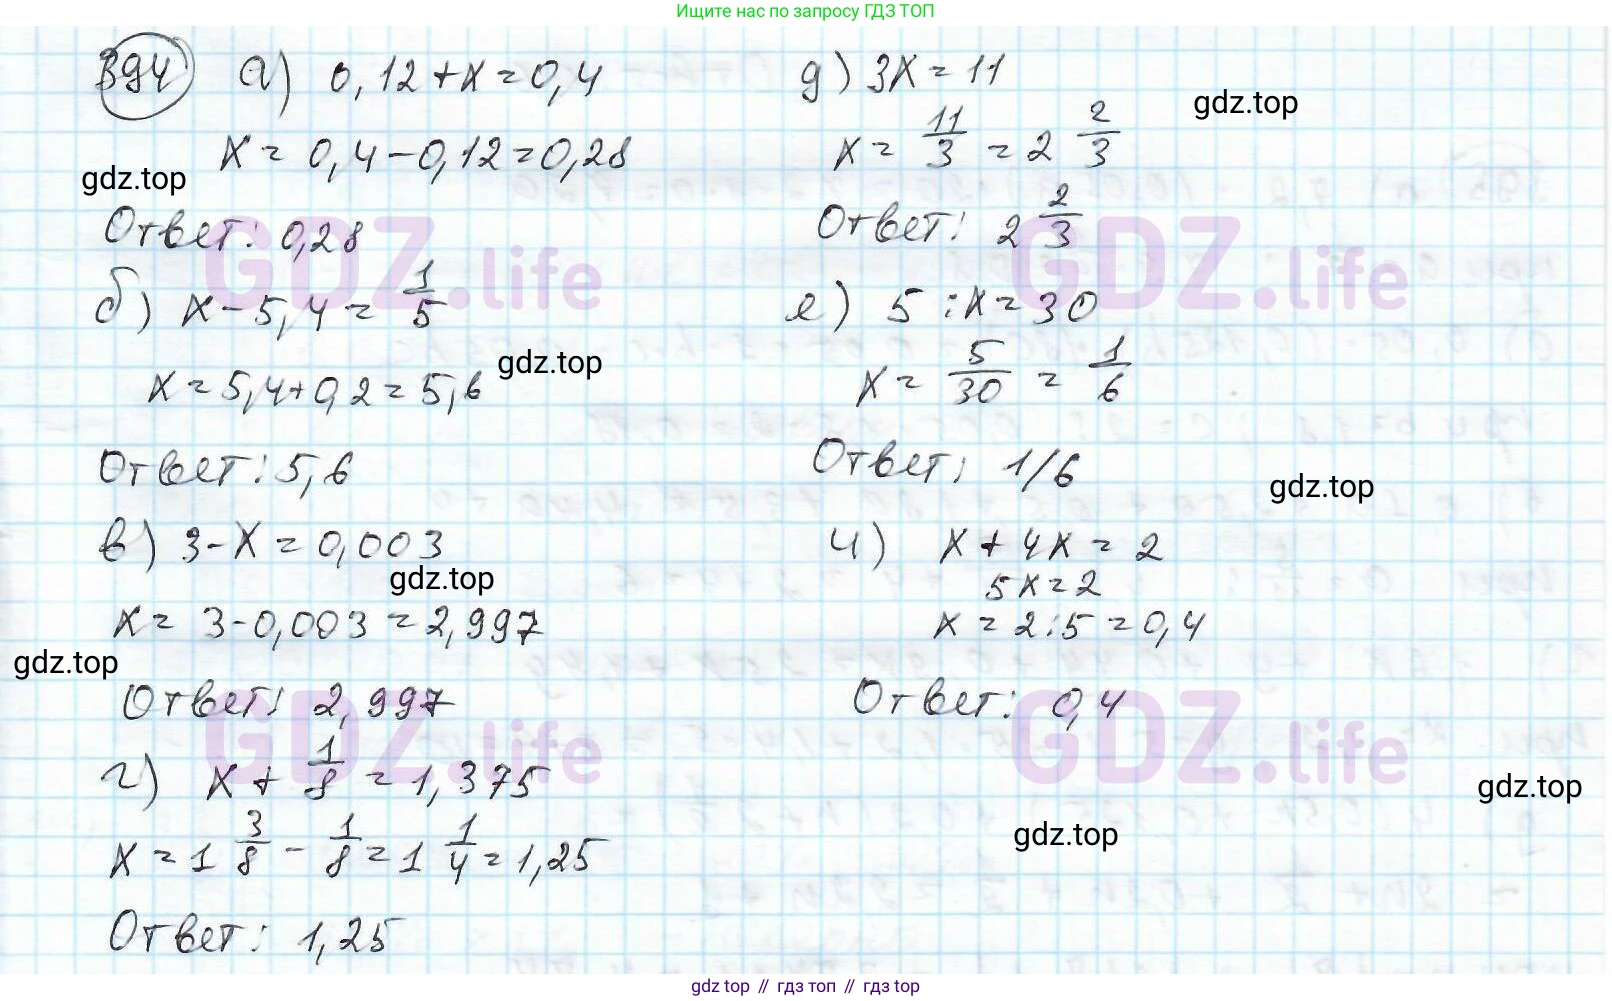 Ищите нас по запросу ГДЗ ТОП
394 а) 0,12+x=0,4
x = 0,4-0,12=0,28
Ответ: 0,28
б) x-5,4=1/5
x=5,4+0,2=5,6
Ответ: 5,6
в) 3-x=0,003
x= 3-0,003=2,997
Ответ: 2,997
г) x+1/8=1,375
x=1 3/8-1/8=1 1/4=1,25
Ответ: 1,25
д) 3x=11
x=11/3=2 2/3
Ответ: 2 2/3
е) 5:x=30
x=5/30=1/6
Ответ: 1/6
ч) x+4x=2
5x=2
x=2:5=0,4
Ответ: 0,4
gdz.top
gdz.top
gdz.top
gdz.top
gdz.top
gdz.top
gdz.top
gdz.top
GDZ.life
GDZ.life
GDZ.life
GDZ.life
gdz top // гдз топ // гдз top